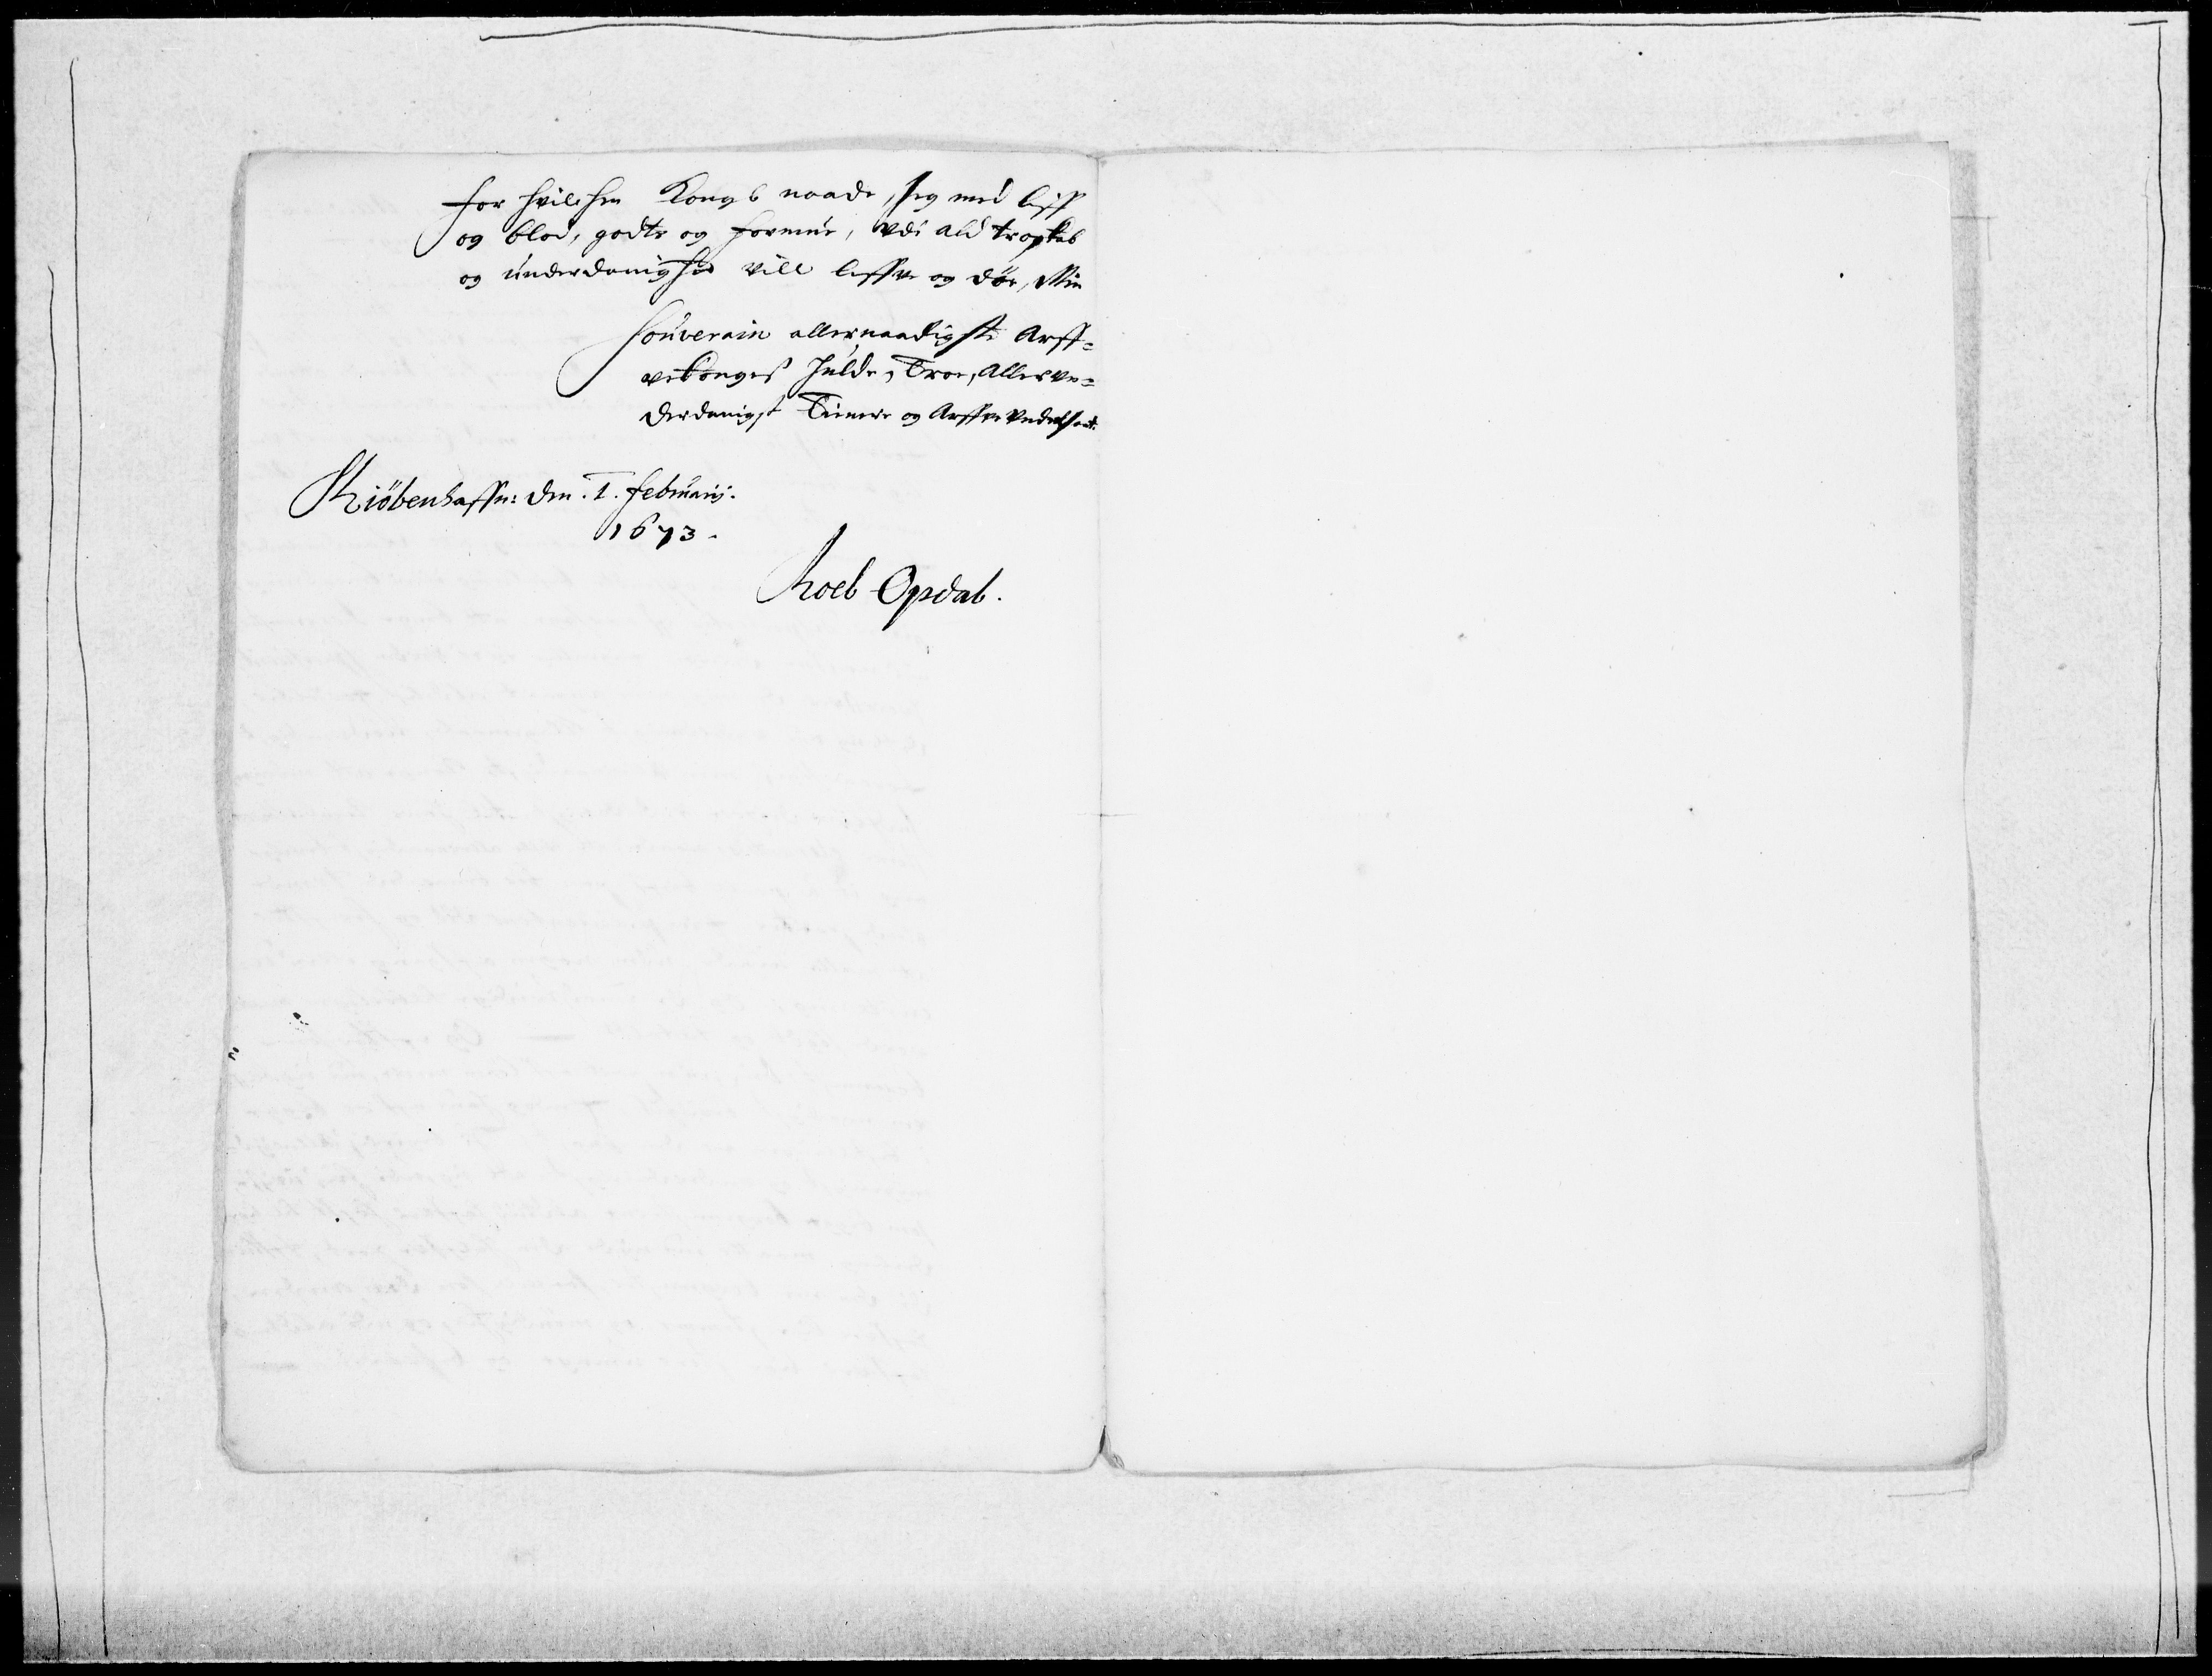 for hvilchen Kongl naade, Jeg med liff
og blod, godts og formue, vdi ald troskab
og underdanighed vill leffve og döe, Min
Souverain allernaadigste Arff-
vekonges Hulde, Troe, Allervn-
derdanigst Tienere og Arffve Vndersaat.
Kiöbenhaffn: den. 1. februarij.
1673.
Opdal.